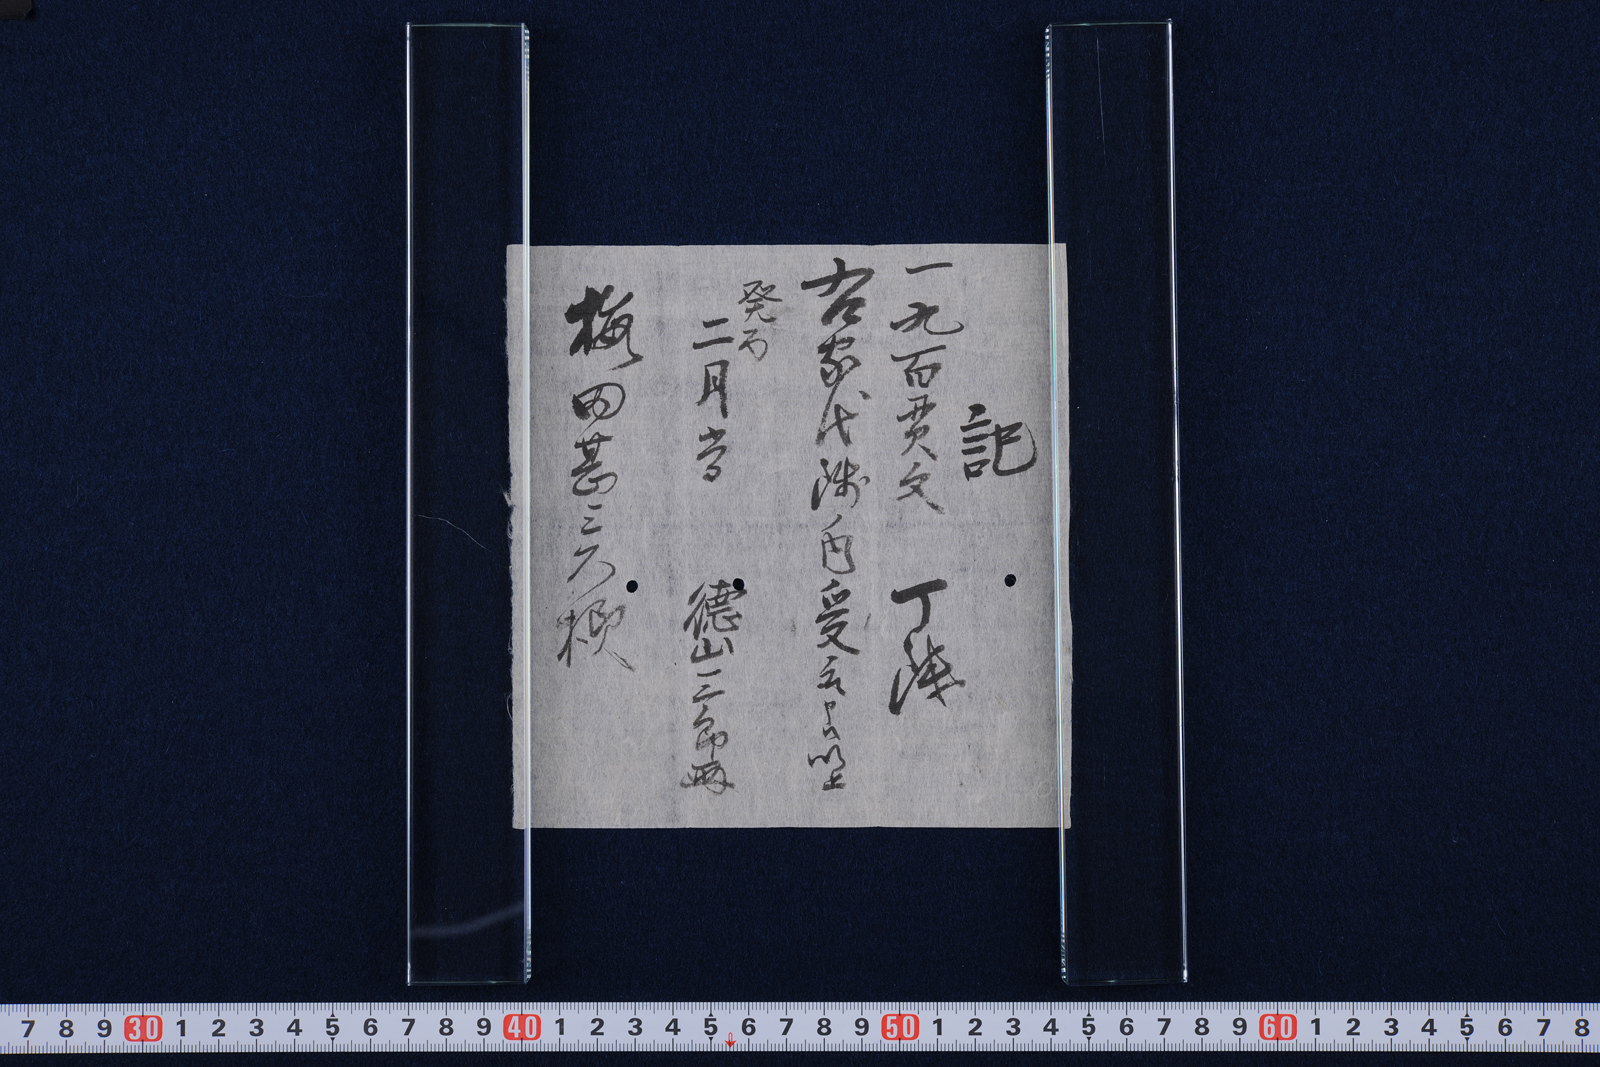 記
一九百貫文 丁銭
右家代残内受取申候以上
癸酉
二月 徳山三郎
梅田甚三久様
7 8 9 30 1 2 3 4 5 6 7 8 9 40 1 2 3 4 5 6 7 8 9 50 1 2 3 4 5 6 7 8 9 60 1 2 3 4 5 6 7 8